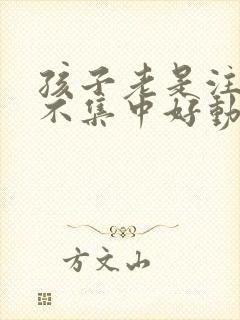 孩子老是注
不集中好動
方文山